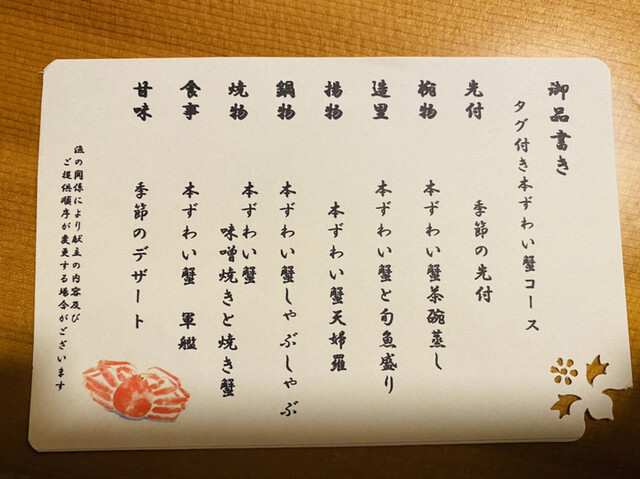 御品書き
タグ付き本ずわい蟹コース
先付 季節の先付
椀物 本ずわい蟹茶碗蒸し
造里 本ずわい蟹と旬魚盛り
揚物 本ずわい蟹天婦羅
鍋物 本ずわい蟹しゃぶしゃぶ
焼物 本ずわい蟹
味噌焼きと焼き蟹
食事 本ずわい蟹 軍艦
甘味 季節のデザート
漁の関係により献立の内容及び
ご提供順序が変更する場合がございます